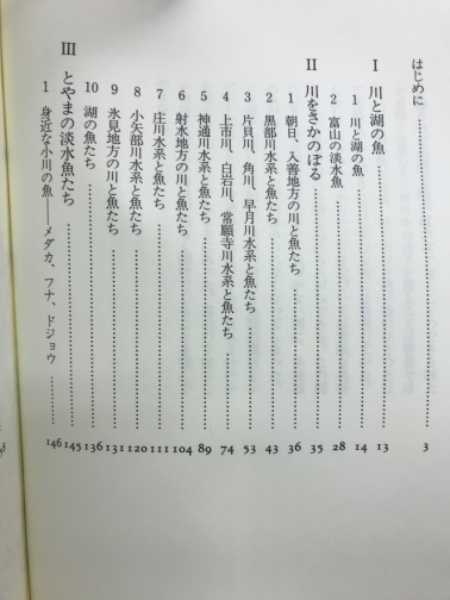 はじめに……………………3
Ⅰ 川と湖の魚……………………13
1 川と湖の魚……………………14
2 富山の淡水魚……………………28
Ⅱ 川をさかのぼる……………………35
1 朝日、入善地方の川と魚たち……………………36
2 黒部川水系と魚たち……………………43
3 片貝川、角川、早月川水系と魚たち……………………53
4 上市川、白岩川、常願寺川水系と魚たち……………………74
5 神通川水系と魚たち……………………89
6 射水地方の川と魚たち……………………104
7 庄川水系と魚たち……………………111
8 小矢部川水系と魚たち……………………120
9 氷見地方の川と魚たち……………………131
10 湖の魚たち……………………136
Ⅲ とやまの淡水魚たち……………………145
1 身近な小川の魚――メダカ、フナ、ドジョウ…………146